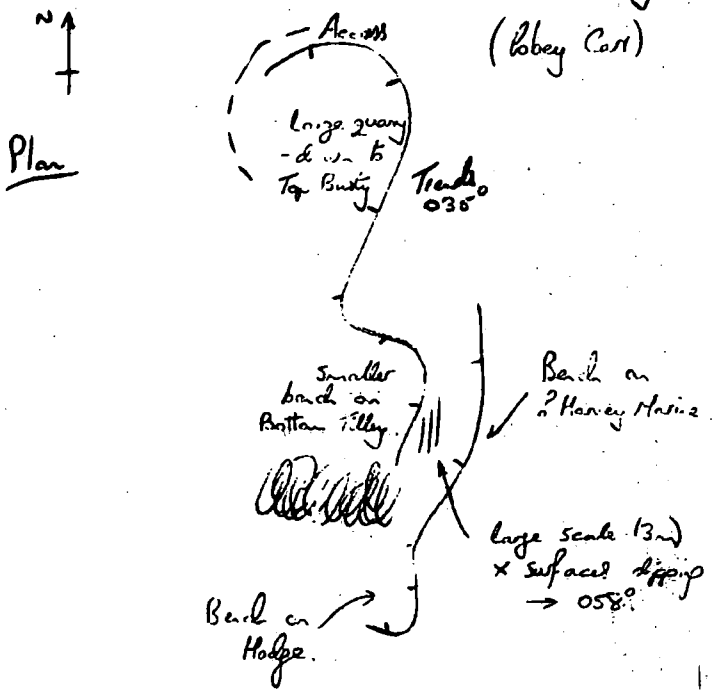 N
Access
(Pobey Carr)
Plan
Large quarry
- down to
Top Busty
Trends
035°
Smaller
bench on
Bottom Tilley
Bench on
? Harvey Marine
Large scale (3m)
x surfaces dipping
→ 058°
Bench on
Hodge.